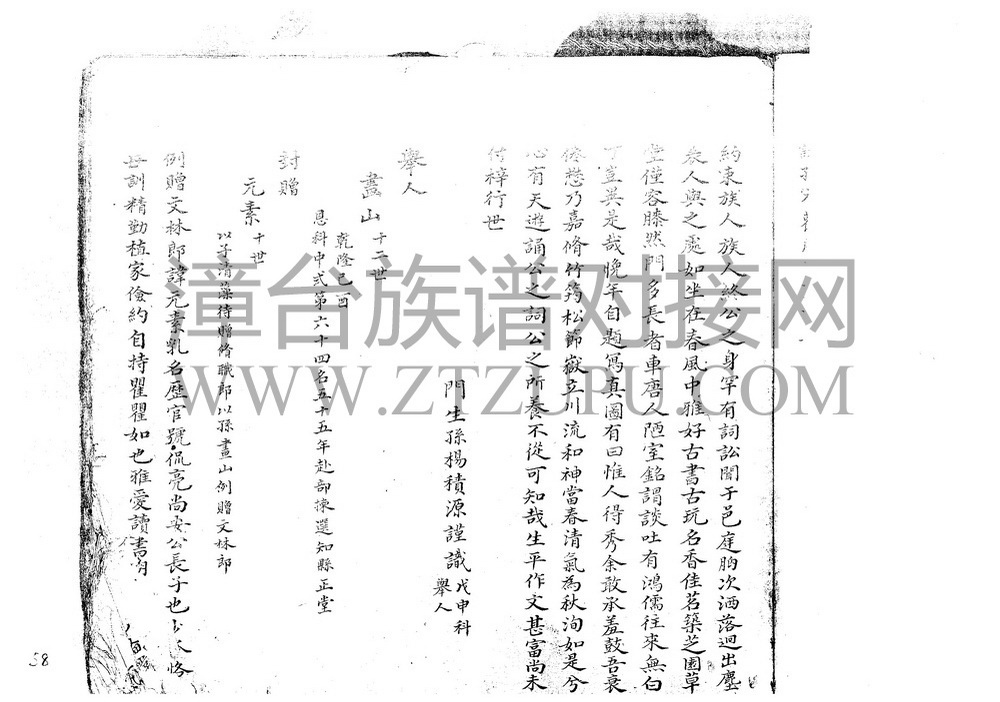 約束族人族人終公之身罕有詞訟聞于邑庭胸次洒落迥出塵
衆人與之處如坐在春風中雅好古書古玩名香佳茗築芝園草
堂僅容膝然門多長者車唐人陋室銘謂談吐有鴻儒往來無白
丁豈異是哉晚年自題寫真圖有曰惟人得秀余敢承羞鼓吾衰
倦懋乃嘉脩竹筠松節嶽立川流和神當春清氣為秋洵如是兮
心有天遊誦公之詞公之所養不從可知哉生平作文甚富尚未
付梓行世
門生孫楊積源謹識 戊申科舉人
舉人
畫山 十二世
乾隆己酉
恩科中式第六十四名五十五年赴部揀選知縣正堂
封贈
元素 十世
以子清藻待贈脩職郎以孫畫山例贈文林郎
例贈文林郎諱元素乳名歷官號侃亮尚安公長子也
訓精勤植家儉約自持瞿瞿如也雅愛讀書
58
漳台族谱对接网
WWW.ZTZUPU.COM